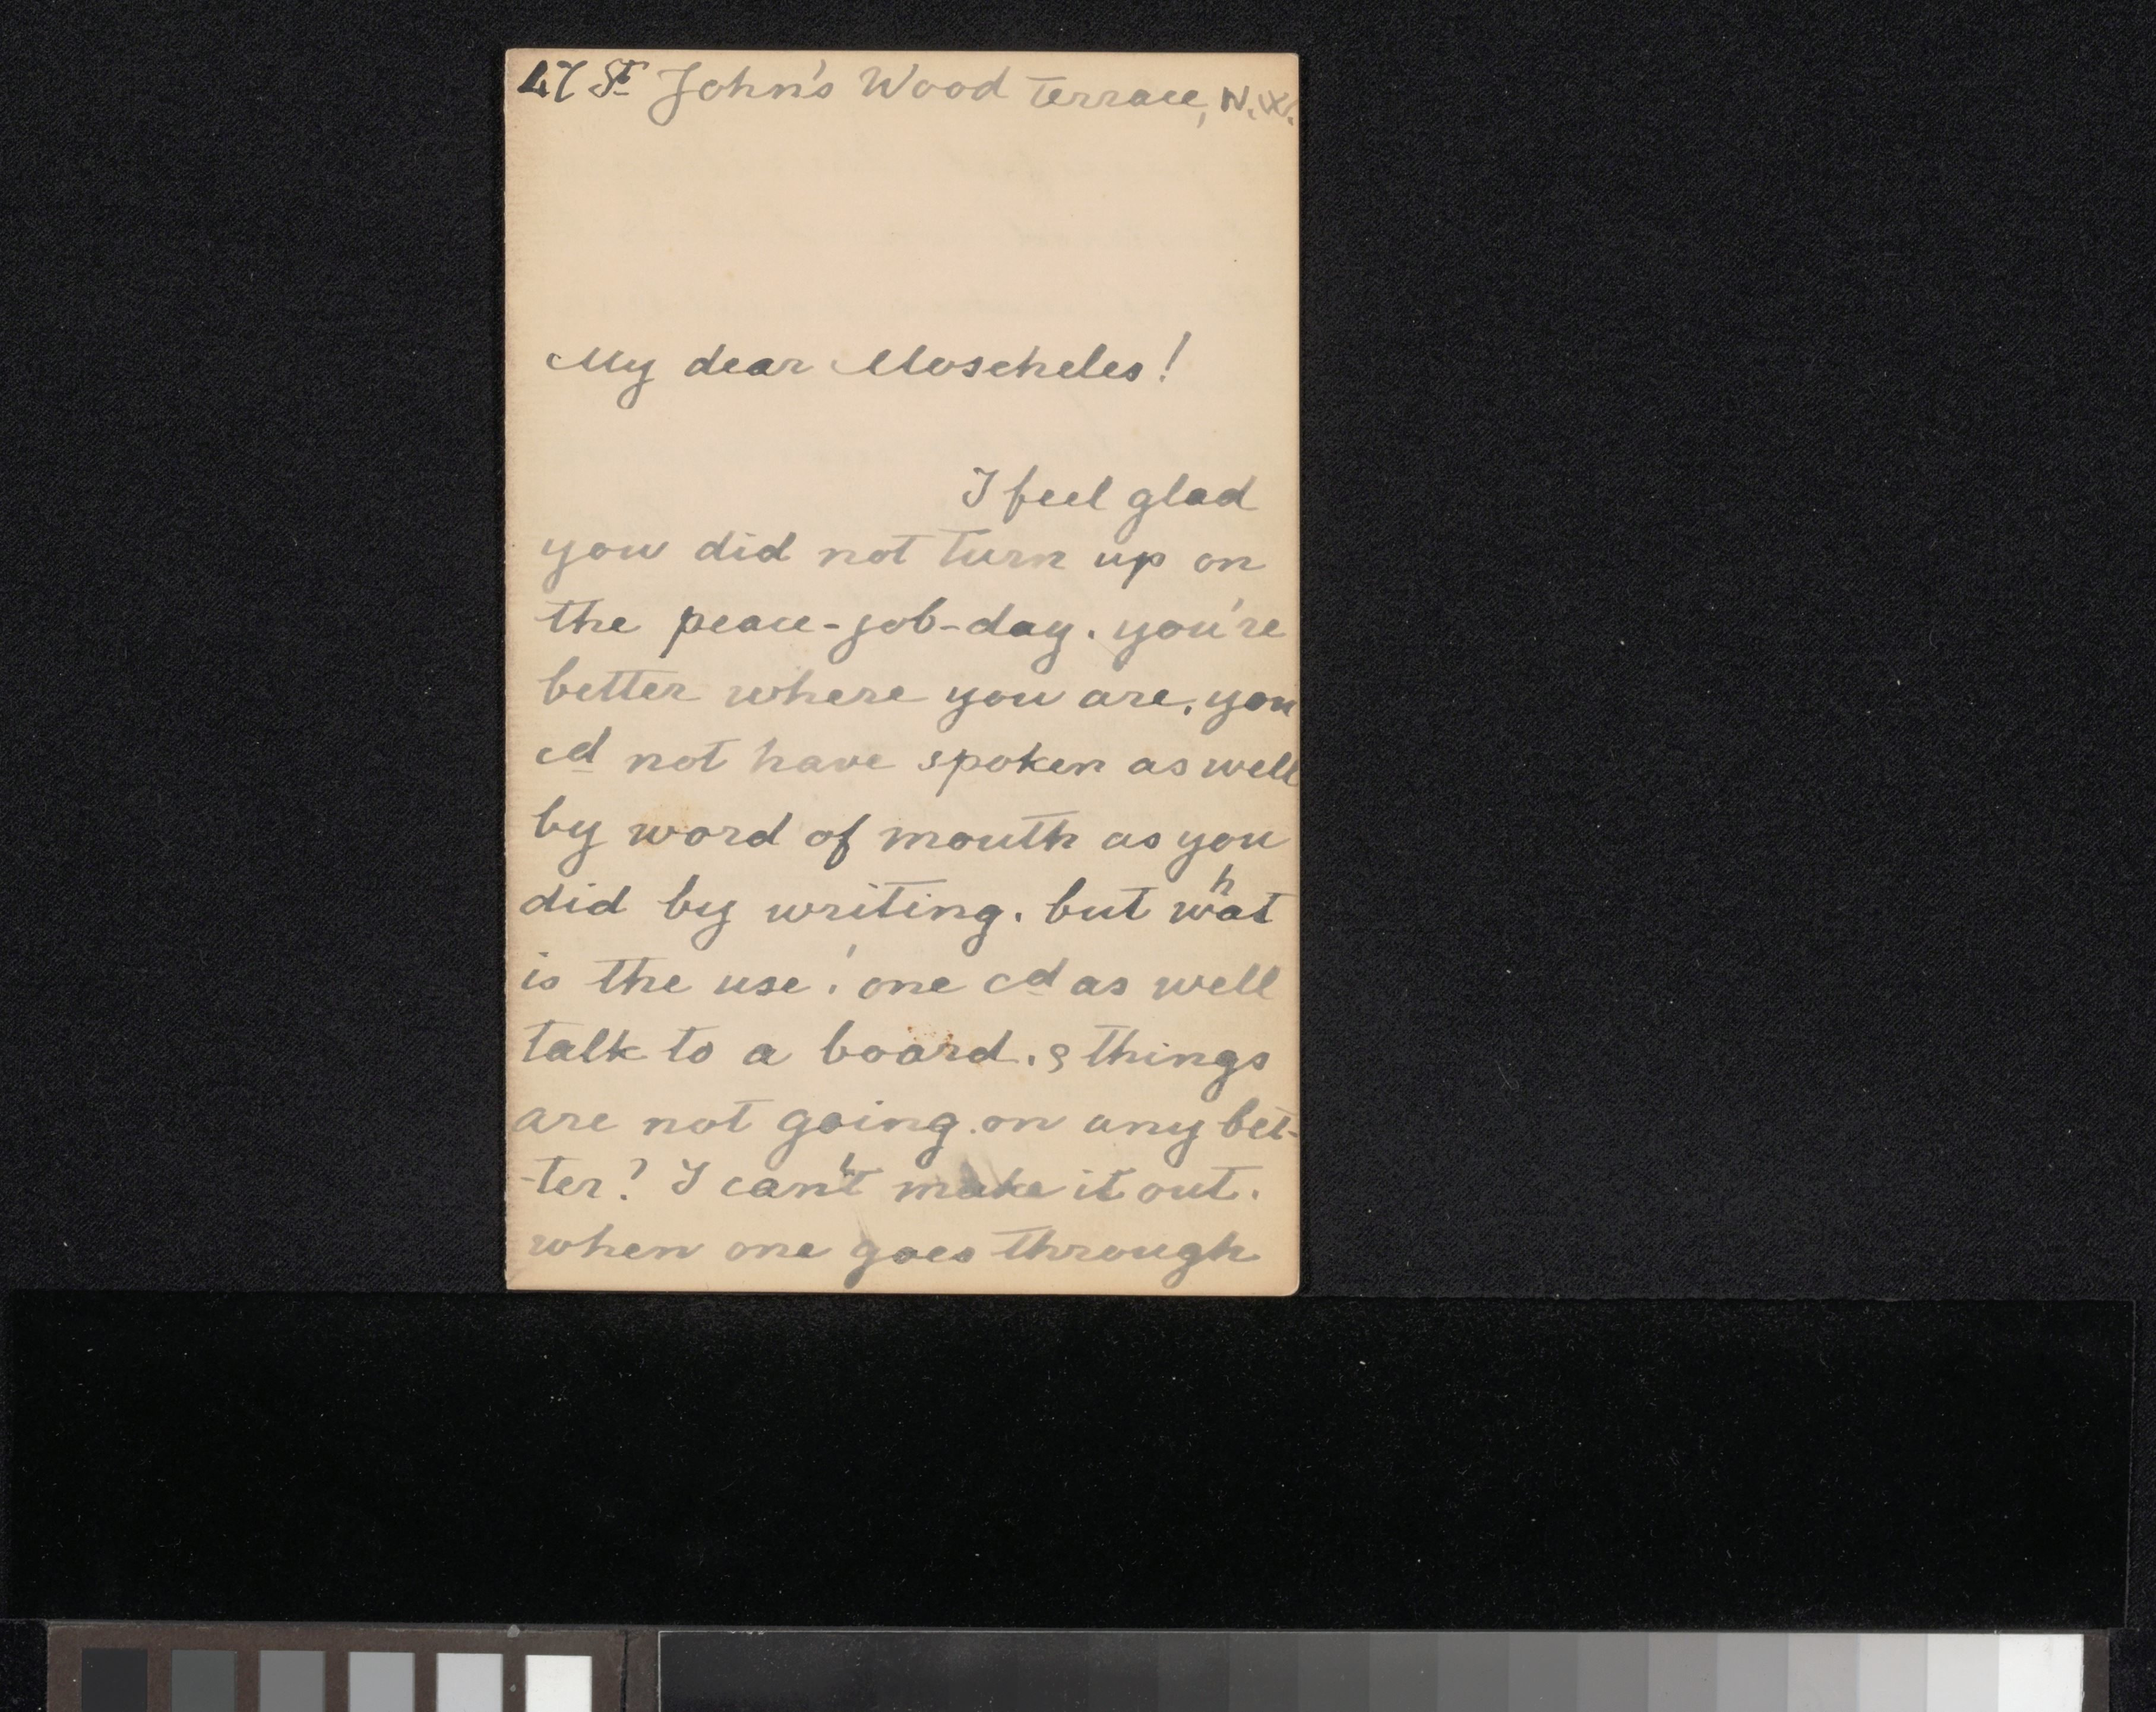 47 St John's Wood Terrace, N.W.
My dear Moscheles!
I feel glad
you did not turn up on
the peace-job-day. you're
better where you are. you
cd not have spoken as well
by word of mouth as you
did by writing. but what
is the use! one cd as well
talk to a board. & things
are not going on any bet-
-ter! I can't make it out.
when one goes through